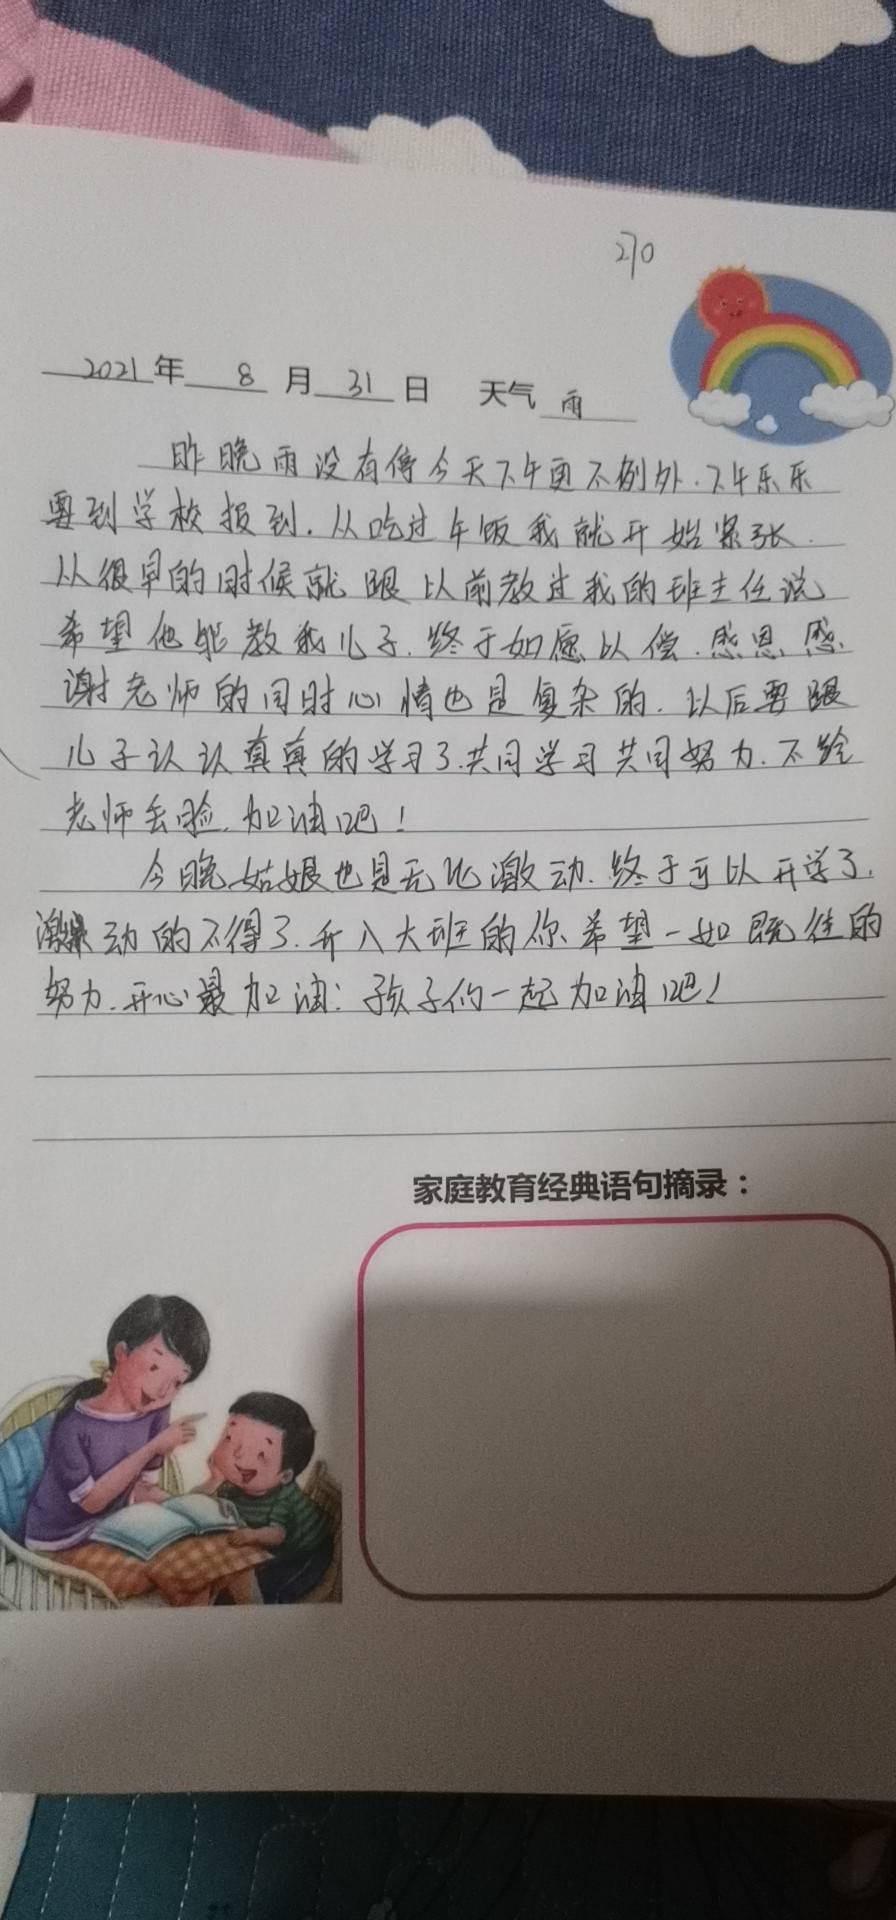 270
2021年 8月31日 天气 雨
昨晚雨没有停今天下午更不例外.下午乐乐
要到学校报到.从吃过午饭我就开始紧张.
从很早的时候就跟以前教过我的班主任说
希望他能教我儿子.终于如愿以偿.感恩感
谢老师的同时心情也是复杂的.以后要跟
儿子认认真真的学习了.共同学习共同努力.不给
老师丢脸.加油吧!
今晚姑娘也是无比激动.终于可以开学了.
激动的不得了.升入大班的你希望一如既往的
努力.开心最加油:孩子们一起加油吧!
家庭教育经典语句摘录：